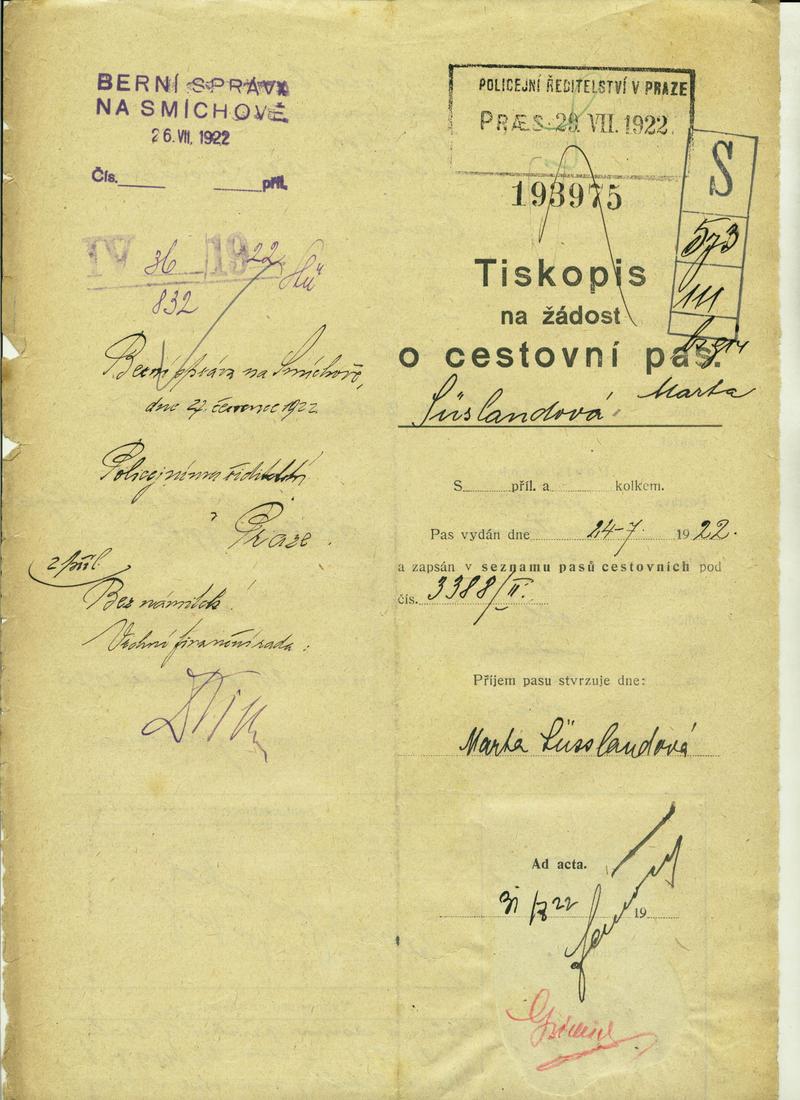 BERNÍ SPRÁVA
NA SMÍCHOVĚ
26. VII. 1922
Čís. příl.
IV 36 1922
832
Berní správa na Smíchově,
dne 27. červenec 1922
Policejnímu ředitelství
v Praze.
Bez námitek!
Vrchní finanční rada:
POLICEJNÍ ŘEDITELSTVÍ V PRAZE
PRÆS. 29. VII. 1922
193975
S
573
III
Tiskopis
na žádost
o cestovní pas.
Süslandová Marta
S příl. a kolkem.
Pas vydán dne 24-7. 1922.
a zapsán v seznamu pasů cestovních pod
čís. 3388/II.
Příjem pasu stvrzuje dne:
Marta Süsslandová
Ad acta.
31/7 22 19